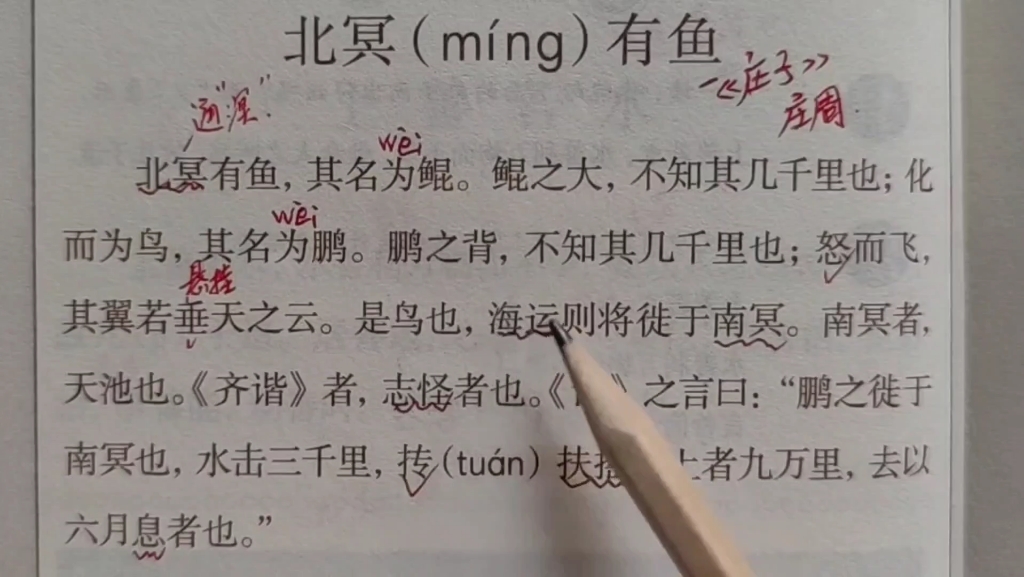 北冥（míng）有鱼
《庄子》
庄周
通“溟”
wèi
北冥有鱼，其名为鲲。鲲之大，不知其几千里也；化
wèi
而为鸟，其名为鹏。鹏之背，不知其几千里也；怒而飞，
悬挂
其翼若垂天之云。是鸟也，海运则将徙于南冥。南冥者，
天池也。《齐谐》者，志怪者也。《》之言曰：“鹏之徙于
南冥也，水击三千里，抟（tuán）扶上者九万里，去以
六月息者也。”